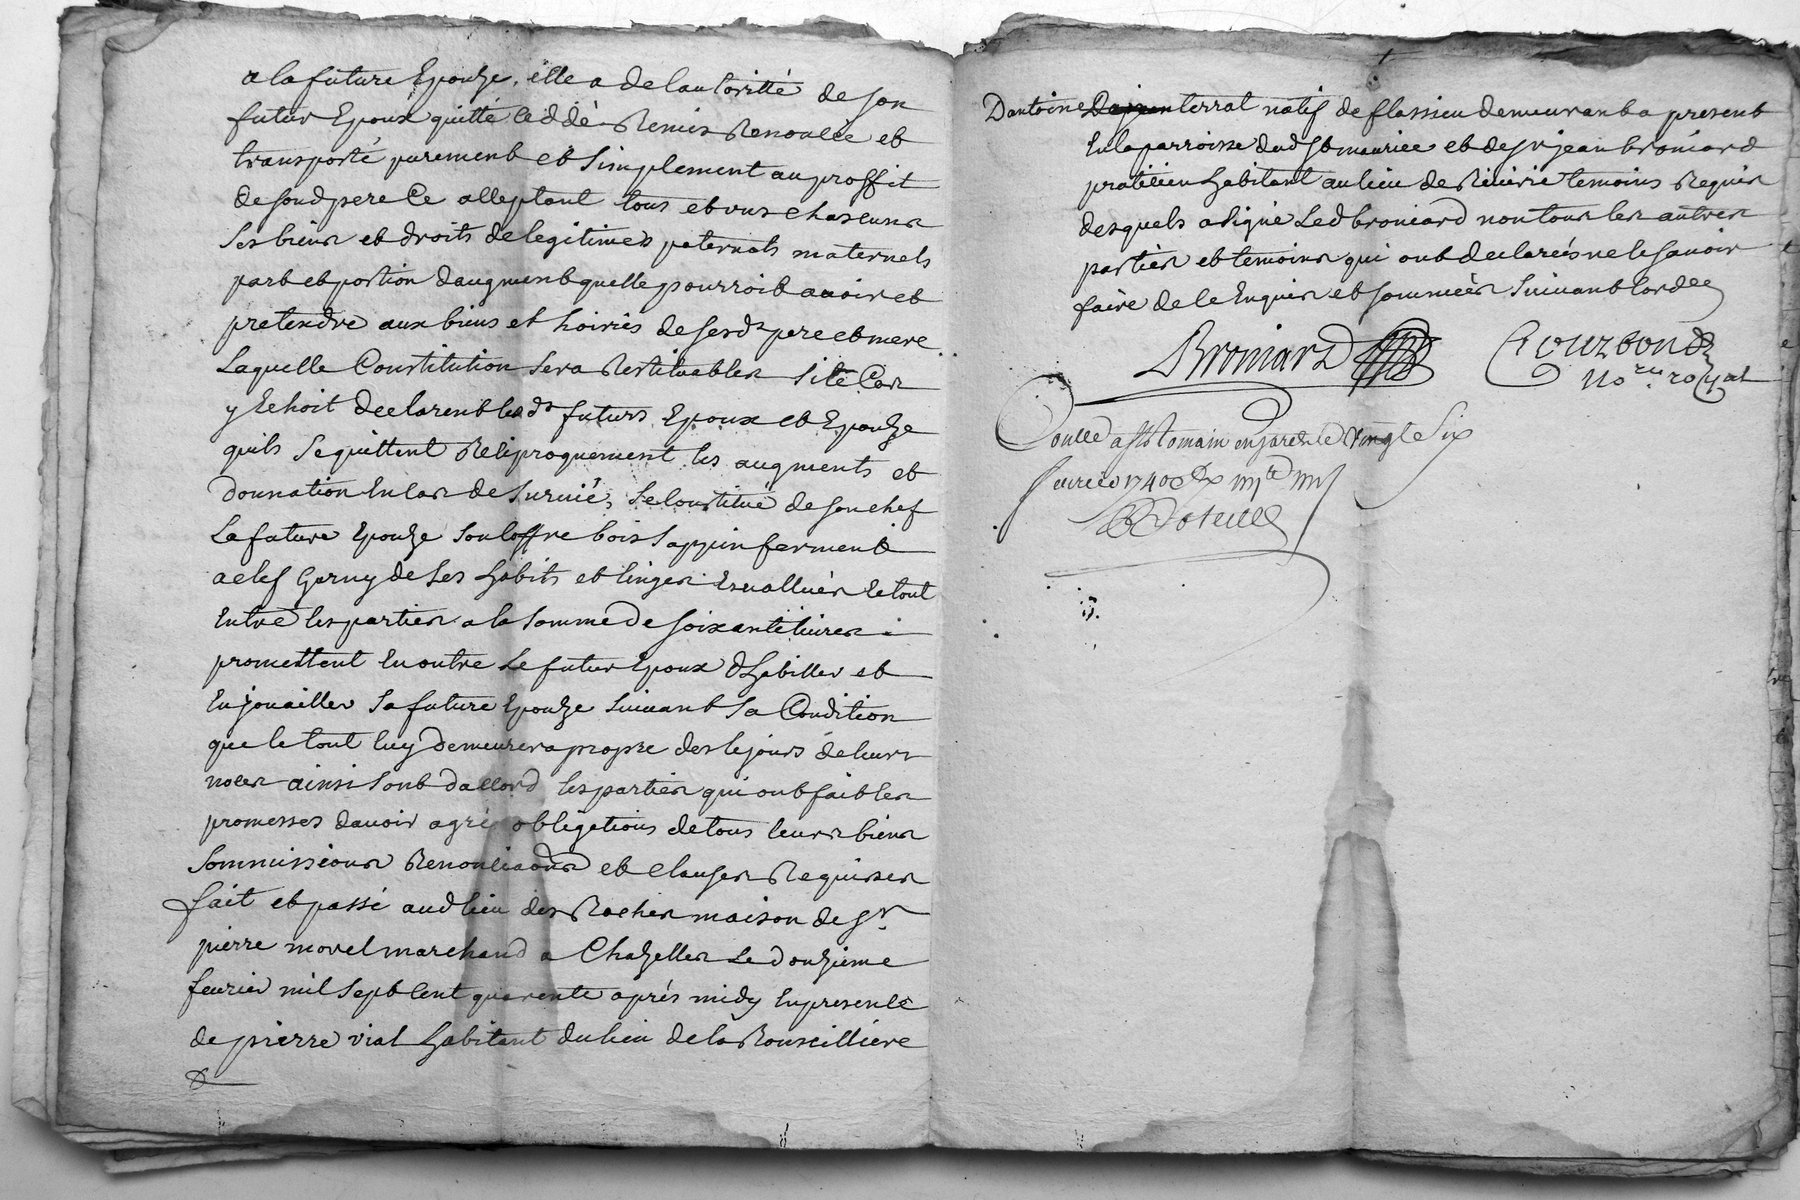 a la future Epouze, elle a de lautoritté de son
futur Epoux quitté ceddé Remis Renoncée et
transporté purement et simplement au proffit
de sond pere ce acceptant tous et uns chascuns
ses biens et droits de legitimes paternels maternels
part et portion daugment quelle pourroit avoir et
pretendre aux biens et hoiries de sesds pere et mere
Laquelle Constitution sera Restituables si le Cas
y Echoit declarent lesds futurs Epoux et Epouze
quils se quittent Reciproquement les augments et
donnation En cas de survie, se constitue de son chef
La future Epouze son coffre bois sappin fermend
a clef Garny de ses habits et linges Esvalluées Le tout
Entre les parties a la somme de soixante livres
promettent En outre Le futur Epoux dhabiller et
Enjouailler sa future Epouze suivant sa Condition
que le tout luy demeurera propre des le jours de leurs
noces ainsi sont daccord les parties qui ont fait les
promesses davoir agré obligations de tous leurs biens
sommissions Renonciaons et clauses Requises
fait et passé aud lieu des Roches maison de sr
pierre morel marchand a Chazelles Le douzieme
fevrier mil sept cent quarente aprés midy En presence
de pierre vial habitant du lieu de la Rouscilliere
D antoine terrat natif de flassieu demeurant a present
En la parroisse dud st maurice et de sr jean broniard
praticien habitant au lieu de Riverie temoins Requis
desquels a signé Led broniard non tous les autres
parties et temoins qui ont declarées ne le savoir
faire de ce Enquis et sommées suivant lorde
Broniard Courbon
No.re royal
a st Romain en jarest le vingt six
fevrier 1740